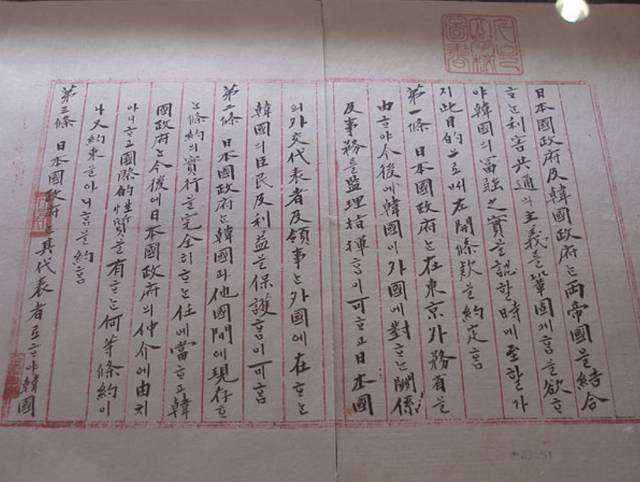 日本國政府及韓國政府는兩帝國을結合
ᄒᆞᄂᆞᆫ利害共通의主義를鞏固케홈을欲ᄒᆞ
야韓國의富强之實을認ᄒᆞᆯ時에至ᄒᆞᆯ가
지此目的으로써左開條款을約定홈
第一條 日本國政府는在東京外務省을
由ᄒᆞ야今後에韓國이外國에對ᄒᆞᄂᆞᆫ關係
及事務를監理指揮홈이可ᄒᆞ고日本國
의外交代表者及領事는外國에在ᄒᆞᄂᆞᆫ
韓國의臣民及利益을保護홈이可홈
第二條 日本國政府는韓國과他國間에現存ᄒᆞ
는條約의實行을完全히ᄒᆞᄂᆞᆫ任에當ᄒᆞ고韓
國政府는今後에日本國政府의仲介에由치
아니ᄒᆞ고國際的性質을有ᄒᆞᄂᆞᆫ何等條約이
나又約束을아니홈을約홈
第三條 日本國政府는其代表者로ᄒᆞ야韓國